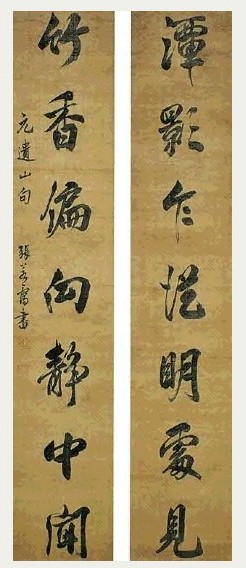 潭影乍從明處見
竹香偏向靜中聞
元遺山句 張若靄書